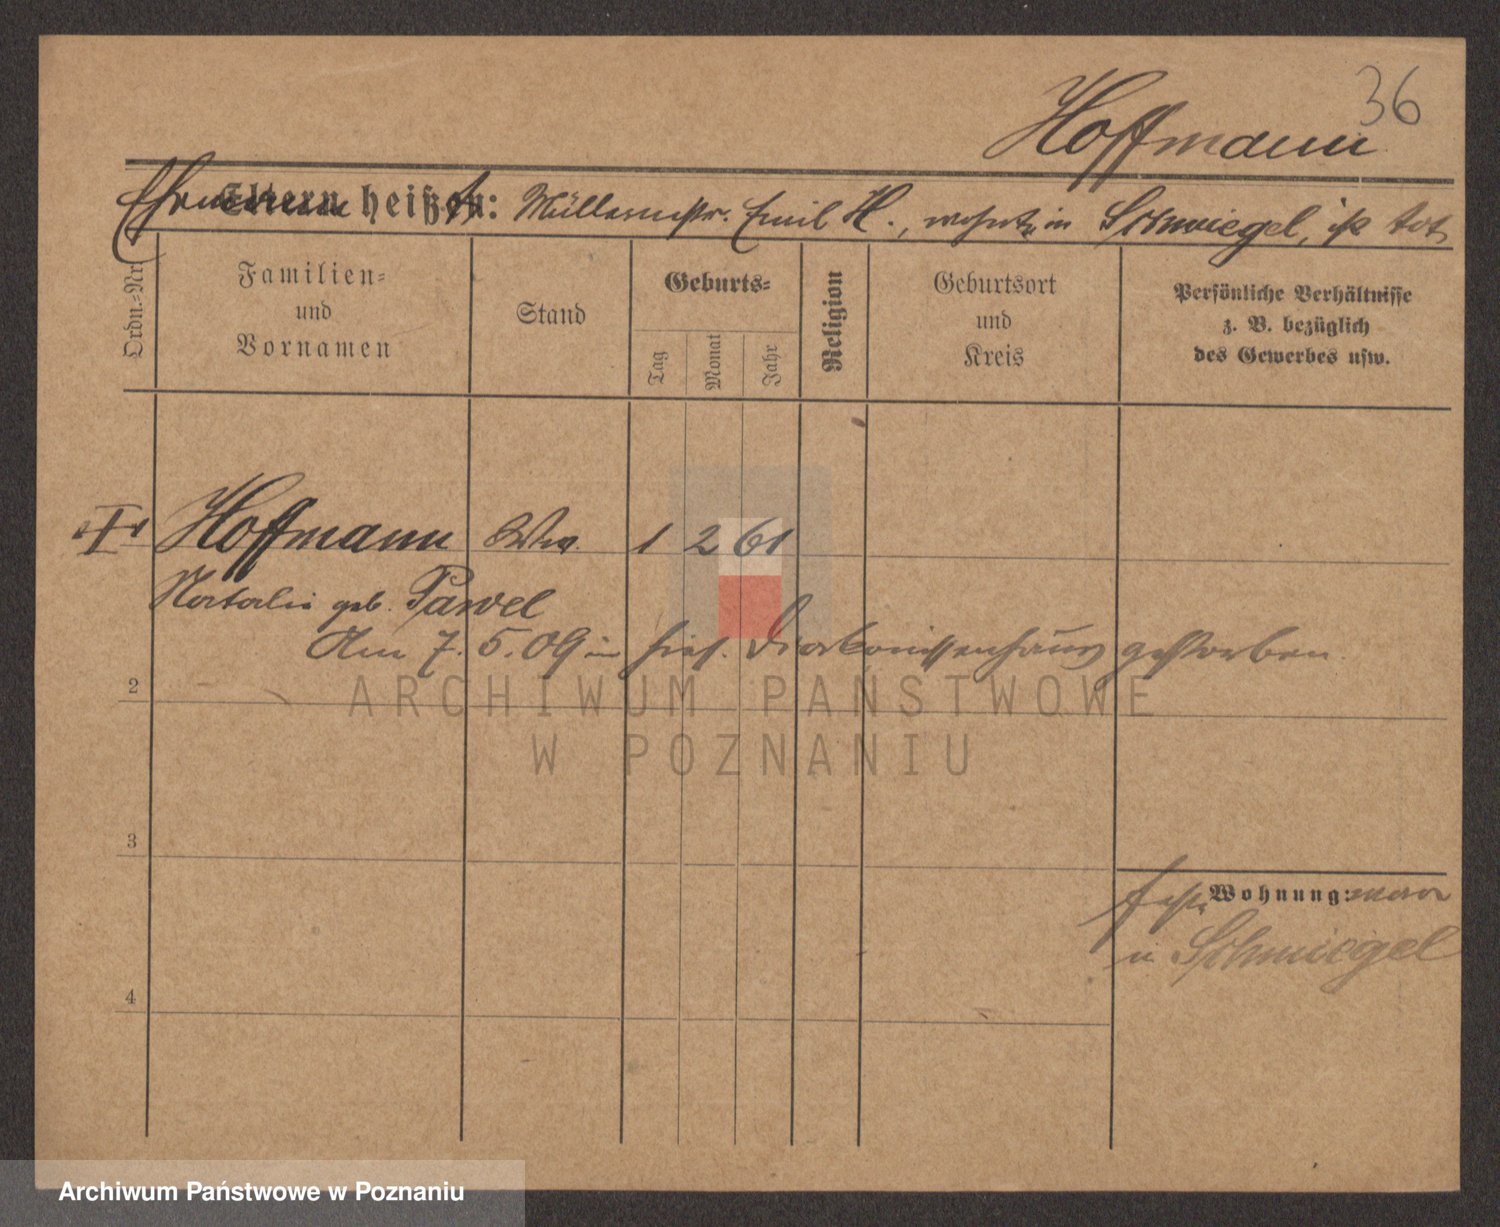 36
Hoffmann
Ehemann Eltern heißen: Müllermstr. Emil H., wohnte in Schmiegel, ist tot
Ordn.-Nr.
Familien-
und
Vornamen
Stand
Geburts-
Tag
Monat
Jahr
Religion
Geburtsort
und
Kreis
Persönliche Verhältnisse
z. B. bezüglich
des Gewerbes usw.
Hoffmann Ww. 1 2 61
Natalie geb. Pawel
Am 7. 5. 09 in hies. Diakonissenhaus gestorben.
2
ARCHIWUM PAŃSTWOWE
W POZNANIU
3
Wohnung: war
in Schmiegel
4
Archiwum Państwowe w Poznaniu